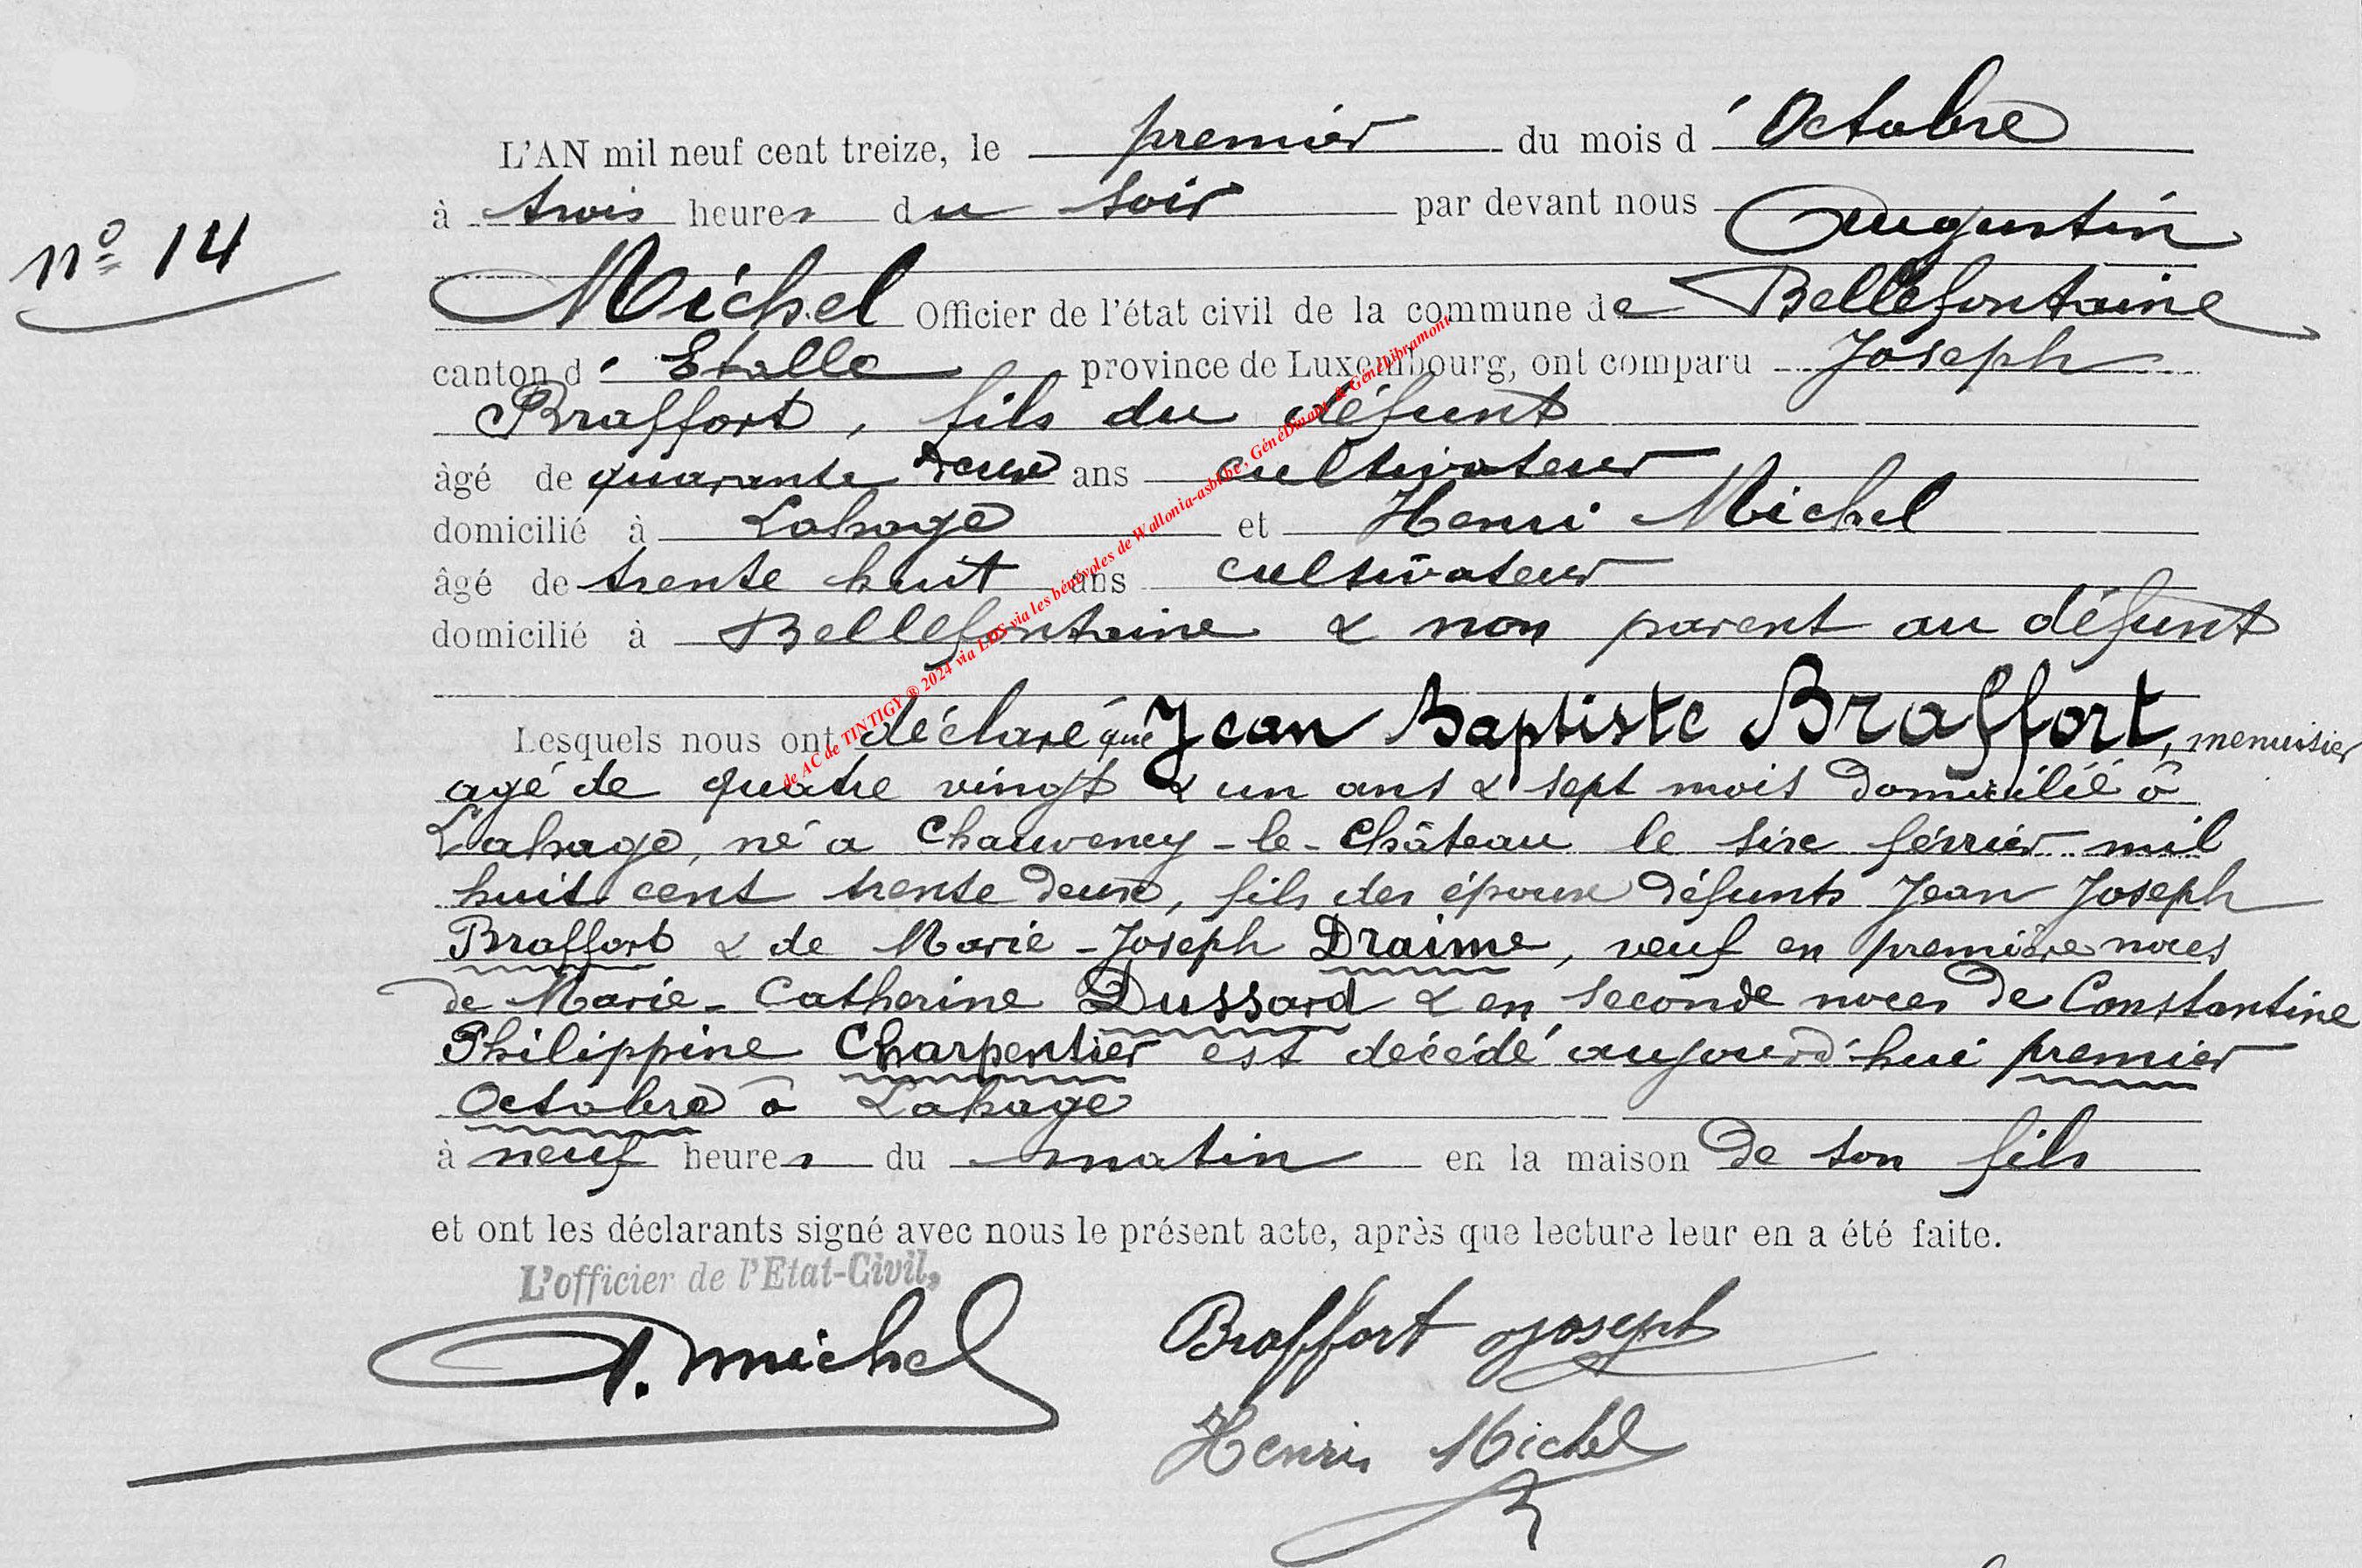 L'AN mil neuf cent treize, le premier du mois d'Octobre
à trois heures du soir par devant nous Augustin
nº 14
Michel Officier de l'état civil de la commune de Bellefontaine
canton d'Etalle province de Luxembourg, ont comparu Joseph
Braffort, fils du défunt
âgé de quarante deux ans cultivateur
domicilié à Lahage et Henri Michel
âgé de trente huit ans cultivateur
domicilié à Bellefontaine & non parent au défunt
Lesquels nous ont déclaré que Jean Baptiste Braffort, menuisier
agé de quatre vingt & un ans & sept mois domicilié à
Lahage, né a Chauvency-le-Château le size février mil
huit cent trente deux, fils des époux défunts Jean Joseph
Braffort & de Marie-Joseph Draime, veuf en première noces
de Marie-Catherine Dussard & en seconde noces de Constantine
Philippine Charpentier est décédé aujourd'hui premier
Octobre à Lahage
à neuf heures du matin en la maison de son fils
et ont les déclarants signé avec nous le présent acte, après que lecture leur en a été faite.
L'officier de l'Etat-Civil,
A. Michel
Braffort Joseph
Henri Michel
de AC de TINTIGY ® 2024 via LDS via les bénévoles de Wallonia-asbl.be, GénéDinant & GénéLibramont